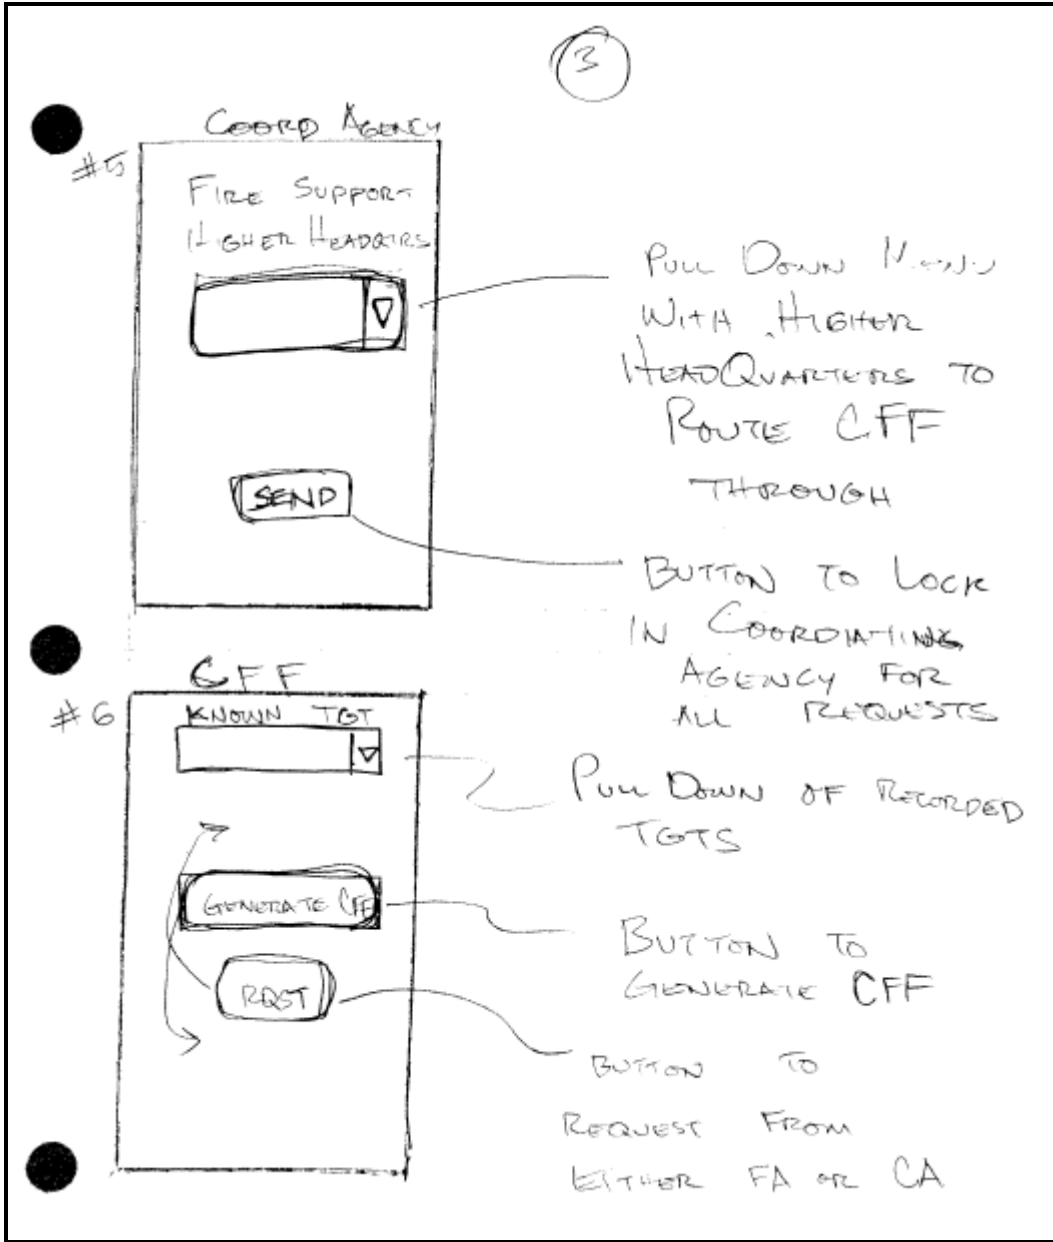 3
COORD AGENCY
#5
FIRE SUPPORT
HIGHER HEADQTRS
SEND
PULL DOWN MENU
WITH HIGHER
HEADQUARTERS TO
ROUTE CFF
THROUGH
BUTTON TO LOCK
IN COORDIATING
AGENCY FOR
ALL REQUESTS
CFF
#6
KNOWN TGT
GENERATE CFF
RQST
PULL DOWN OF RECORDED
TGTS
BUTTON TO
GENERATE CFF
BUTTON TO
REQUEST FROM
EITHER FA OR CA